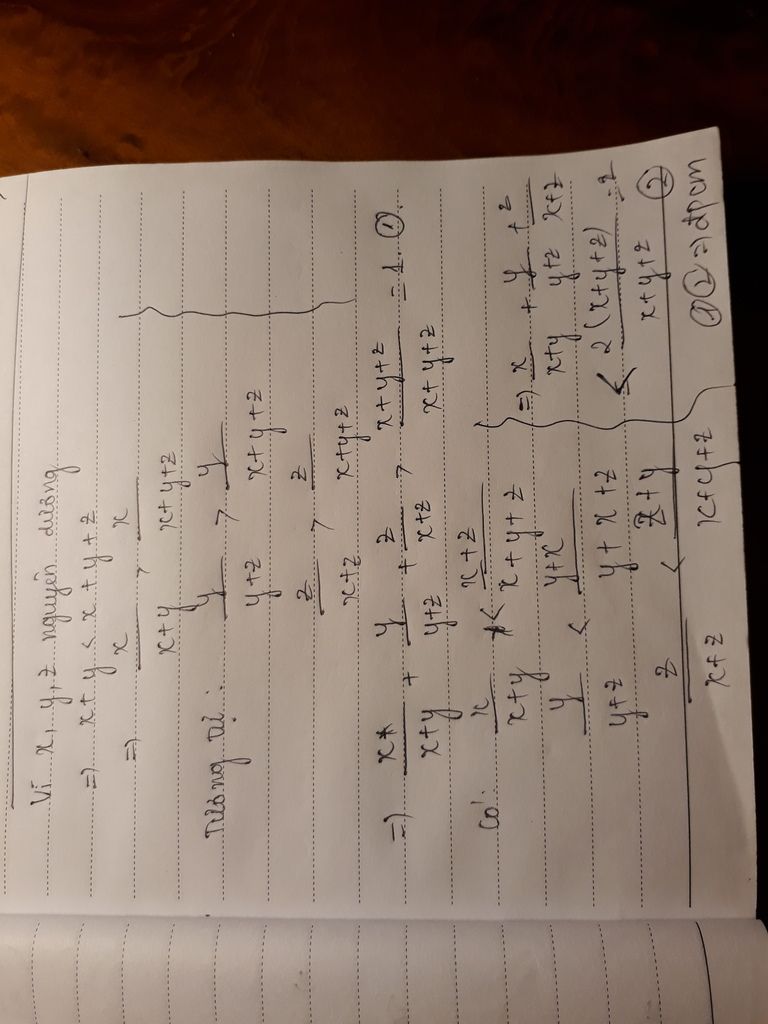 Vì x, y, z nguyên dương
=> x + y < x + y + z
=> x/(x+y) > x/(x+y+z)
Tương tự: y/(y+z) > y/(x+y+z)
z/(x+z) > z/(x+y+z)
=> x/(x+y) + y/(y+z) + z/(x+z) > (x+y+z)/(x+y+z) = 1. ①.
Có: x/(x+y) < (x+z)/(x+y+z)
y/(y+z) < (y+x)/(y+x+z)
z/(x+z) < (z+y)/(x+y+z)
=> x/(x+y) + y/(y+z) + z/(x+z)
< 2(x+y+z)/(x+y+z) = 2 ②
①② => đpcm